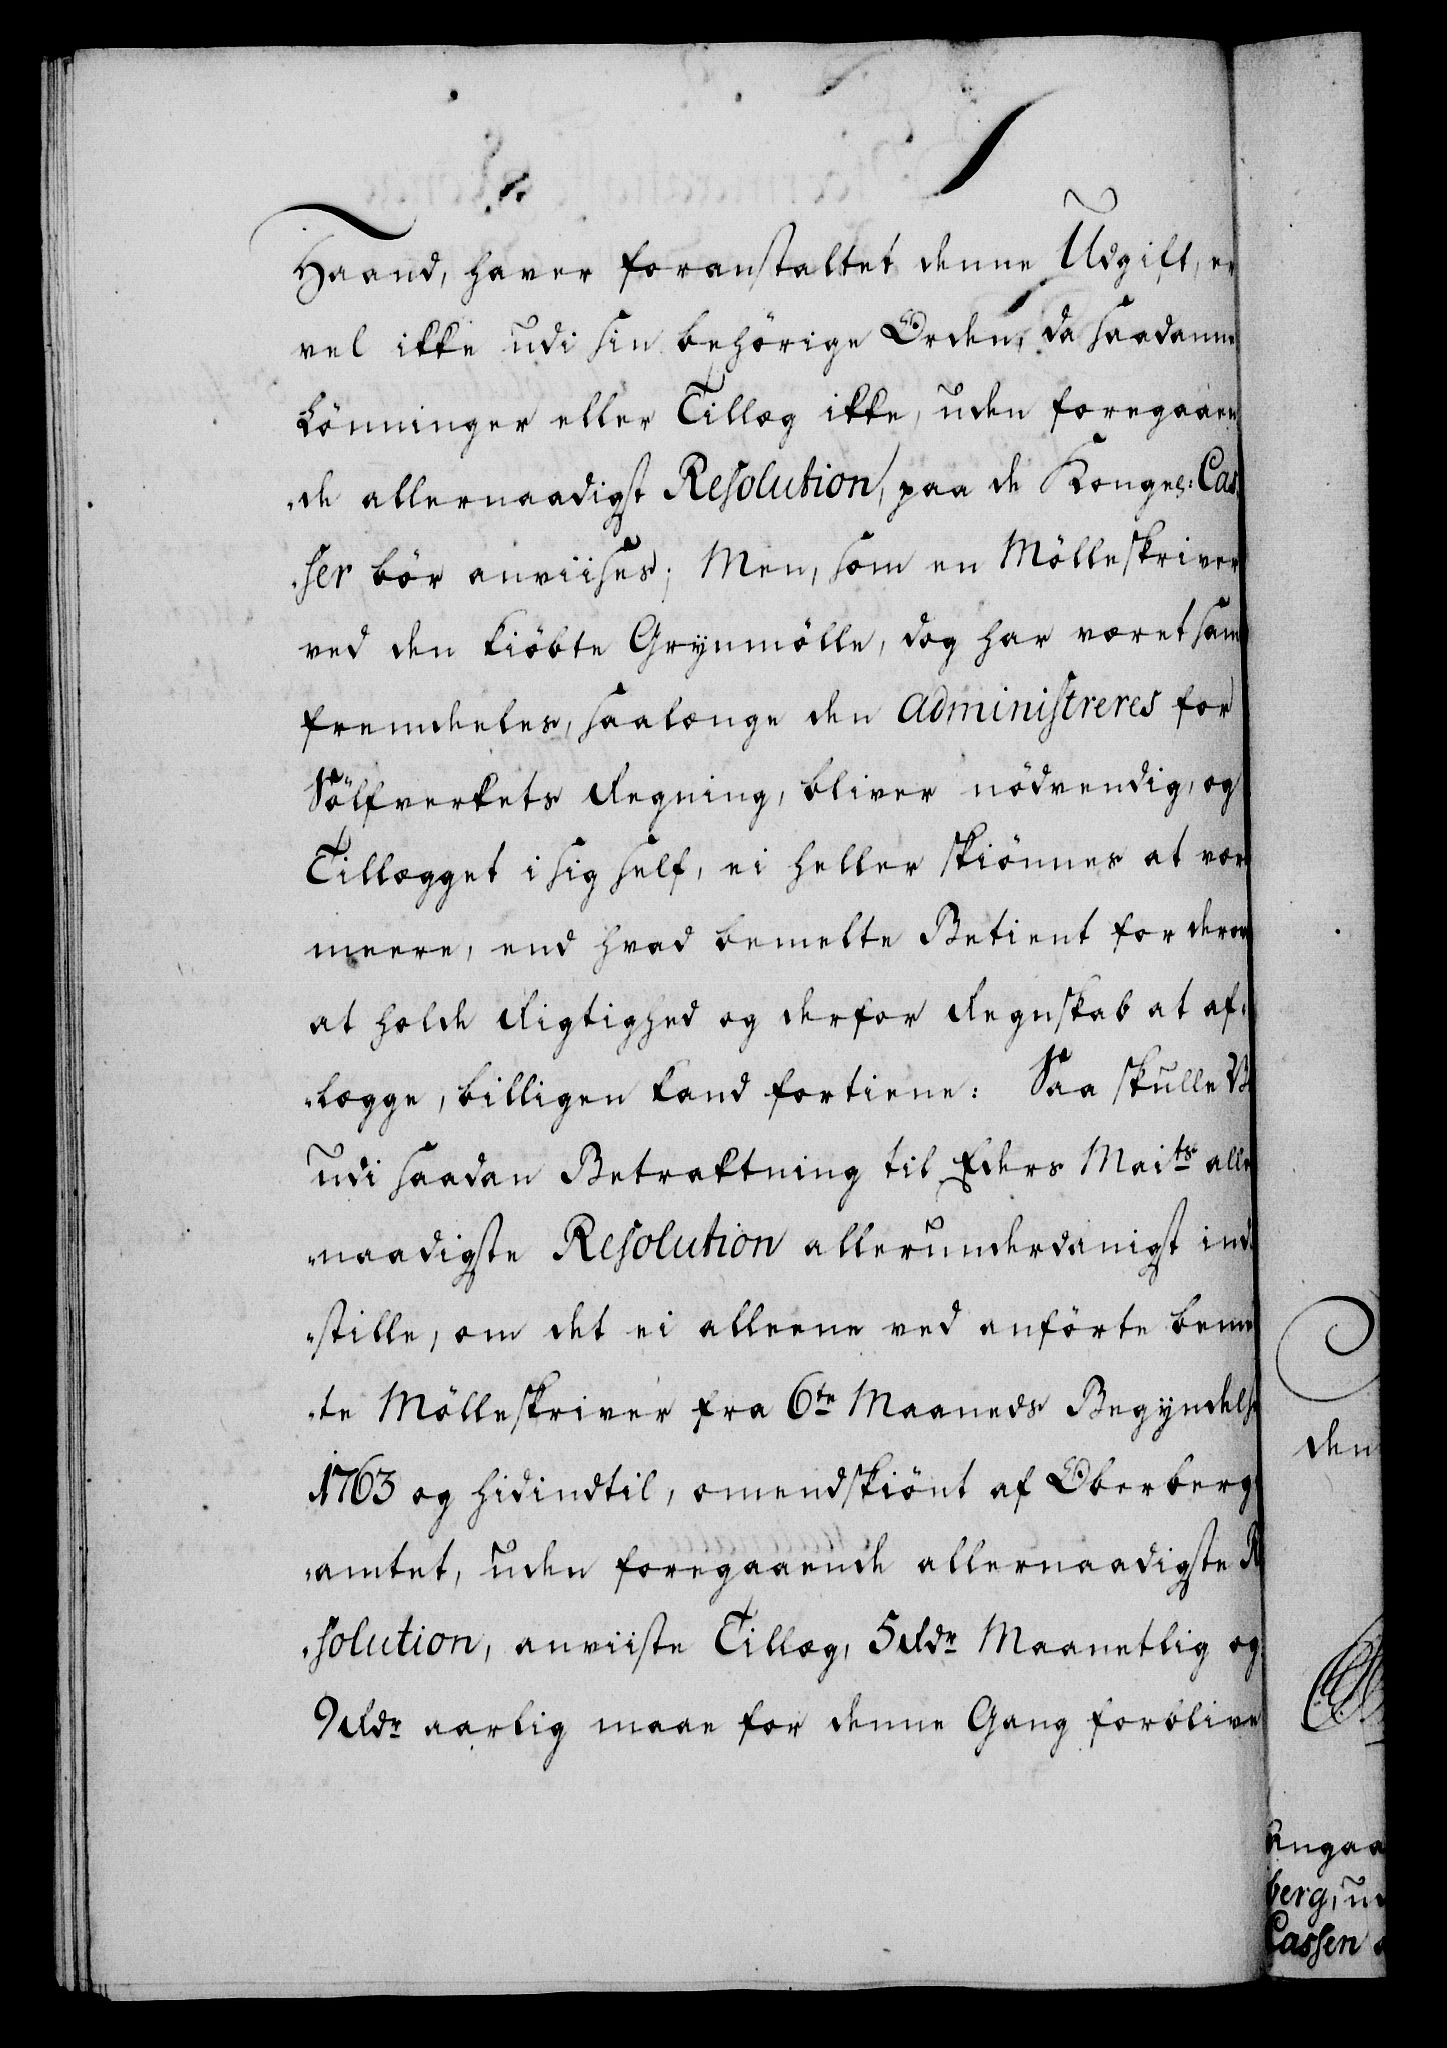 Haand, haver foranstaltet denne Udgift, er
vel ikke udi sin behörige Orden, da saadanne
Lönninger eller Tillæg ikke, uden foregaaen
de allernaadigst Resolution, paa de Kongel: Cas
ser bör anviises; Men, som en Mölleskriver
ved den kiöbte Grynmölle, dog har været samt
fremdeeles, saalænge den administreres for
Sölfverkets Regning, bliver nödvendig, og
Tillægget i sig self, ei heller skiönnes at være
meere, end hvad bemelte Betient for derov
at holde Rigtighed og derfor Regnskab at af-
lægge, billigen kand fortiene: Saa skulle V
udi saadan Betraktning til Eders Maits aller
naadigste Resolution allerunderdanigst ind-
stille, om det ei alleene ved anförte bemel
te Mölleskriver fra 6te Maaneds Begyndelse
1763 og hidindtil, omendskiönt af Oberberg-
amtet, uden foregaaende allernaadigste R
solution, anviiste Tillæg, 5 Rdr Maanetlig og
9 Rdr aarlig maae for denne Gang forblive
den
Angaa
berg, ud
Cassen